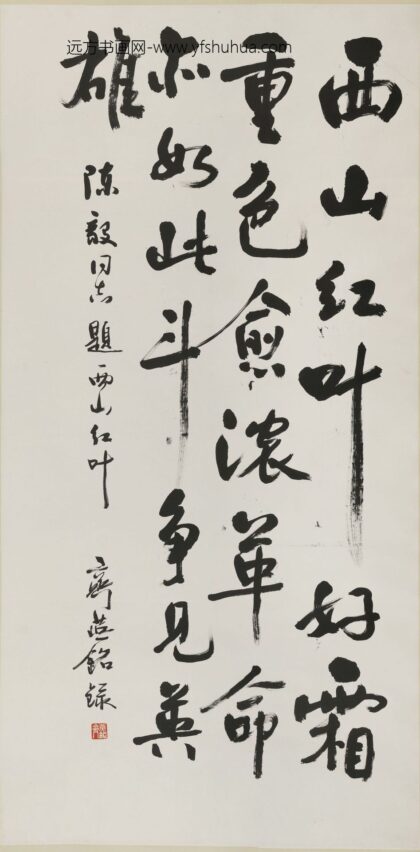 远方书画网-www.yfshuhua.com
西山红叶好霜
重色愈浓革命
亦如此斗争见英
雄
陈毅同志题西山红叶
齐燕铭录